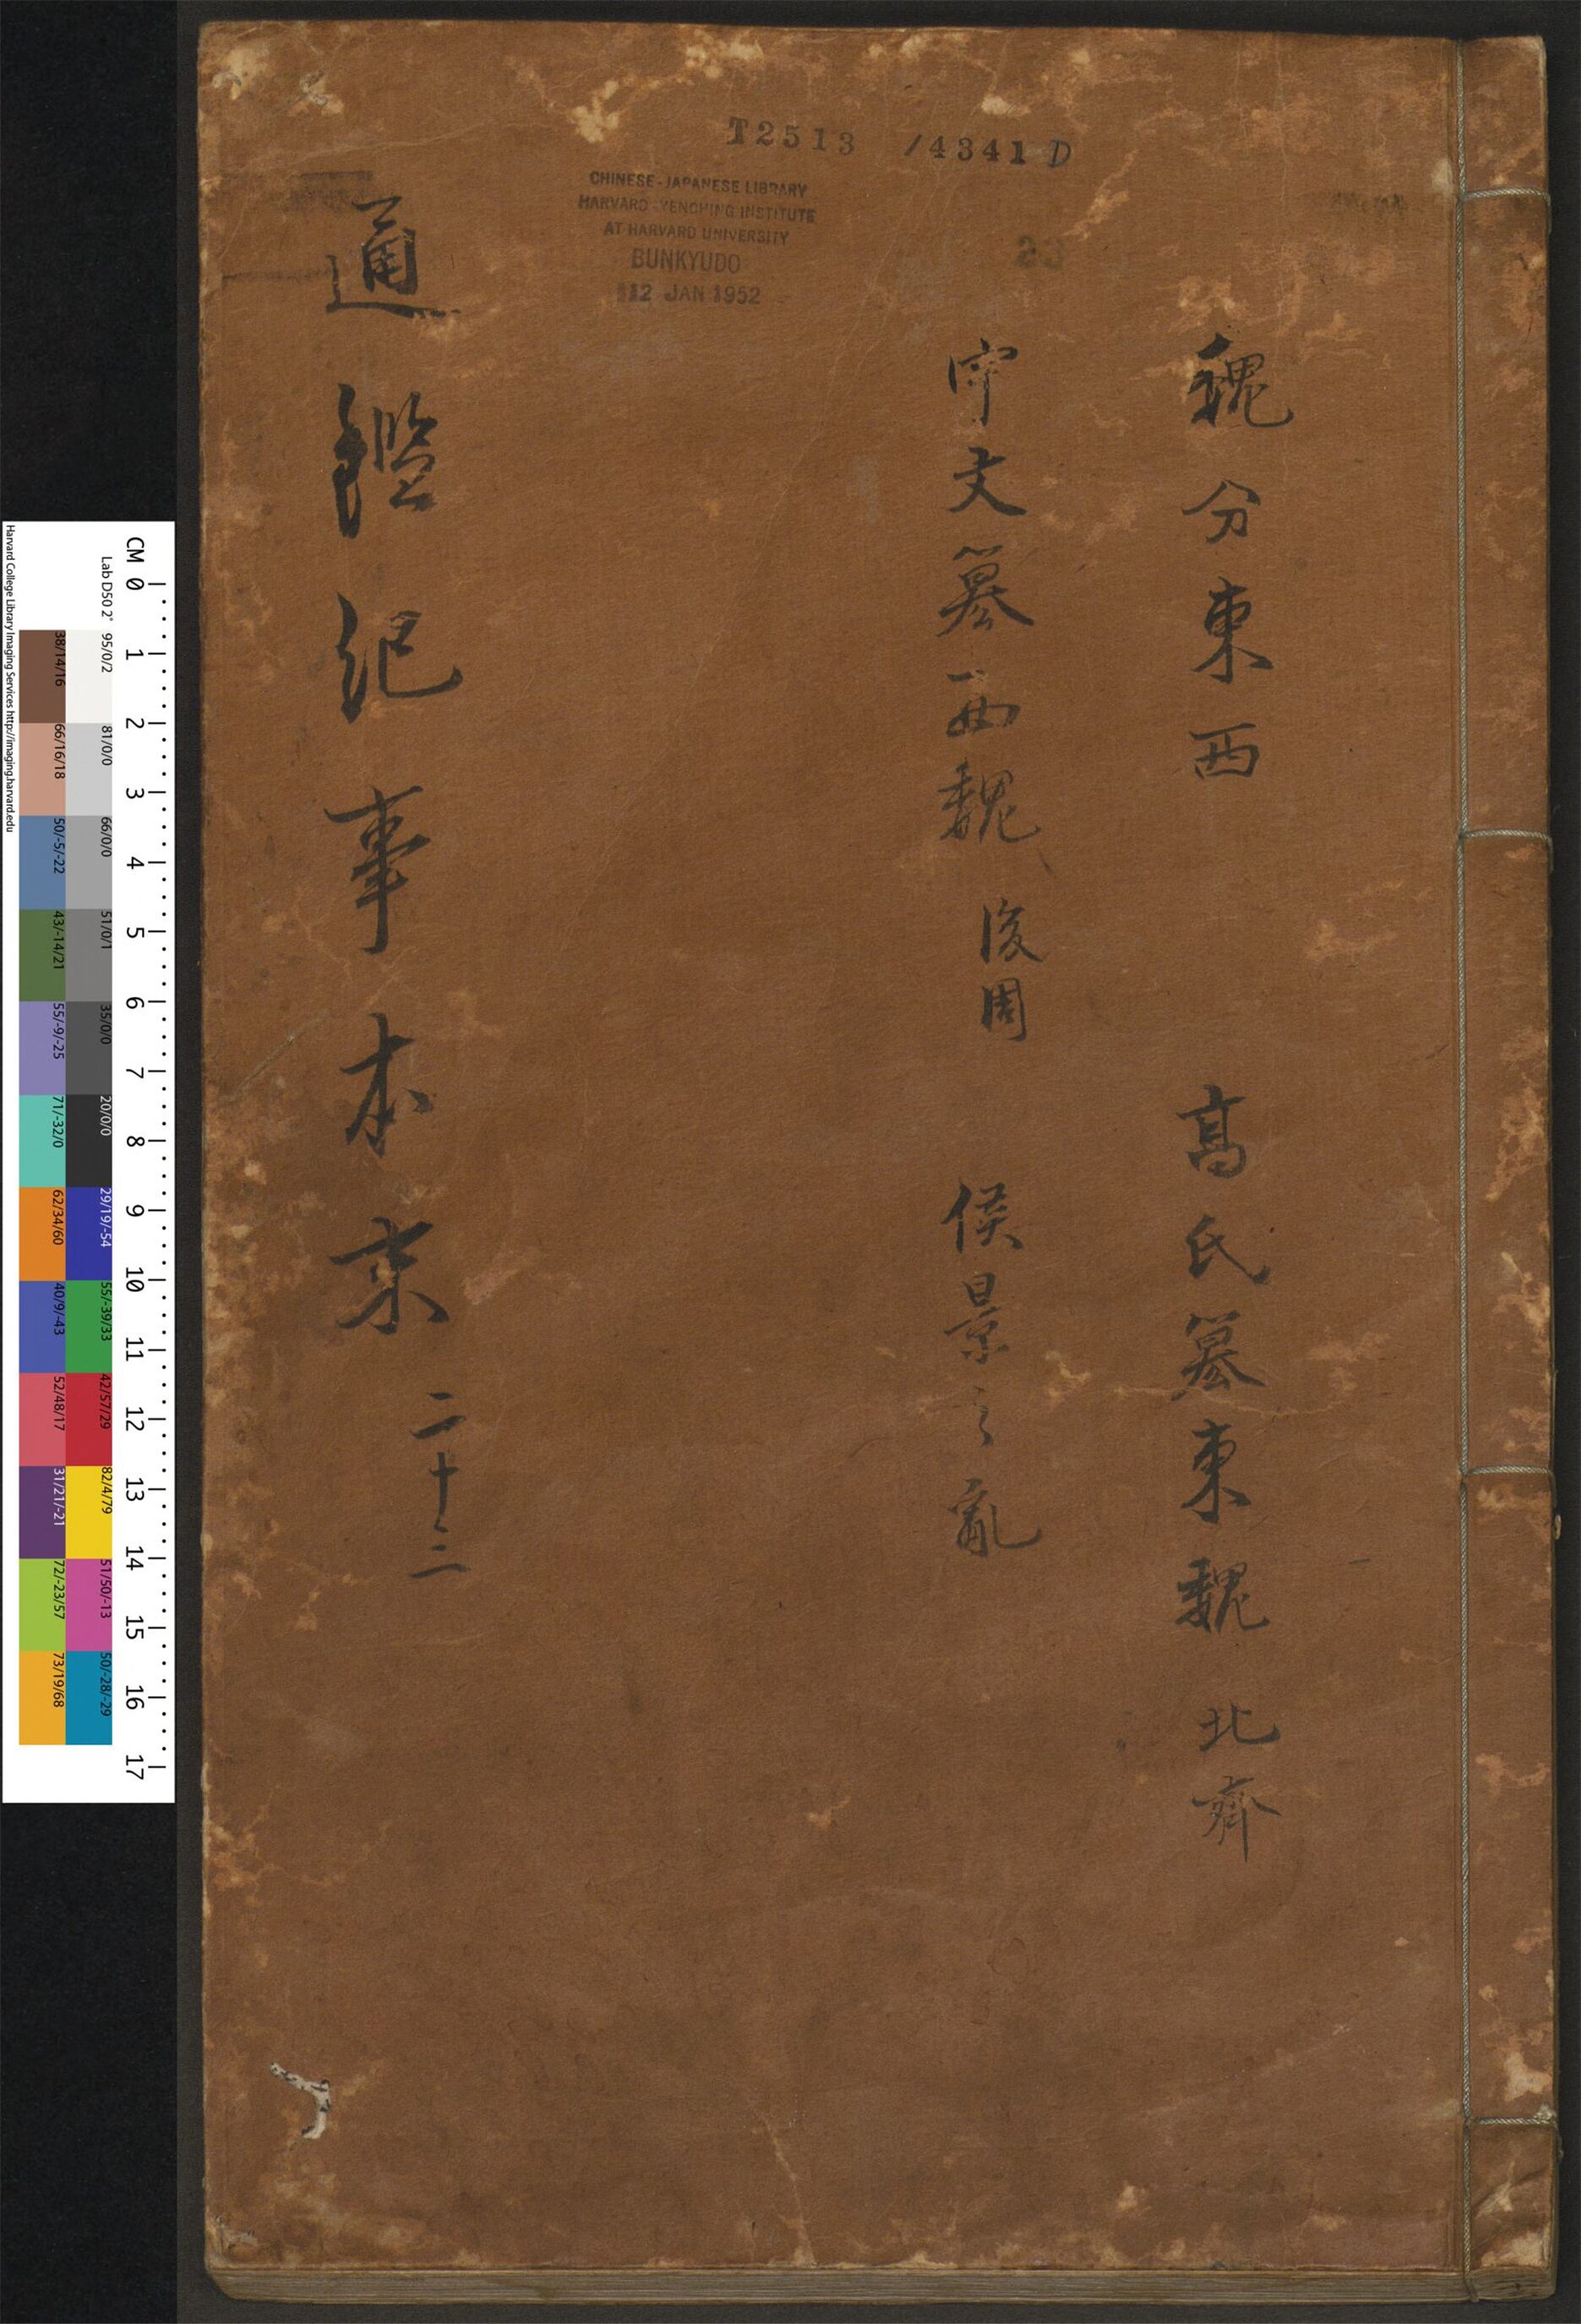 T2513 /4341 D
CHINESE-JAPANESE LIBRARY
HARVARD-YENCHING INSTITUTE
AT HARVARD UNIVERSITY
BUNKYUDO
12 JAN 1952
23
魏分東西 高氏篡東魏 北齊
宇文篡西魏 後周 侯景之亂
通鑑紀事本末 二十三
CM 0 1 2 3 4 5 6 7 8 9 10 11 12 13 14 15 16 17
Lab D50 2° 95/0/2 81/0/0 66/0/0 51/0/1 35/0/0 20/0/0 29/19/-54 55/-39/33 42/57/29 82/4/79 51/50/-13 50/-28/-29
38/14/16 66/16/18 50/-5/-22 43/-14/21 55/-9/-25 71/-32/0 62/34/60 40/9/-43 52/48/17 31/21/-21 72/-23/57 73/19/68
Harvard College Library Imaging Services http://imaging.harvard.edu